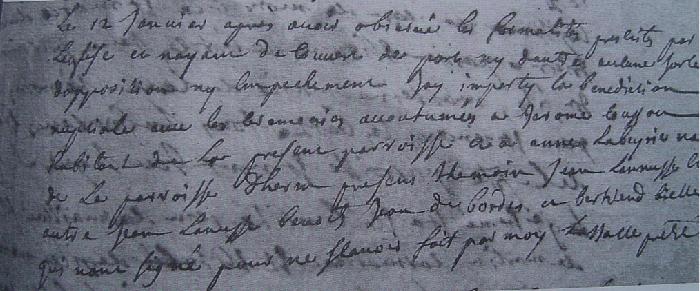 Le 12 Janvier apres avoir observé les formalités prescrits par
L'eglise et n'ayant decouvert de part ny dautre aucune sorte
d'opposition ny Empechement Jay imparty la benediction
nuptiale avec les ceremonies accoutumées a Jerôme
habitant de La presente parroisse et a anne Labeyrie na
de La parroisse D'herm presens themoin Jean Lanusse
autre Jean Lanusse Jean du bordes et bertrend
qui nont signé pour ne sçavoir fait par moy Lassalle prêtre